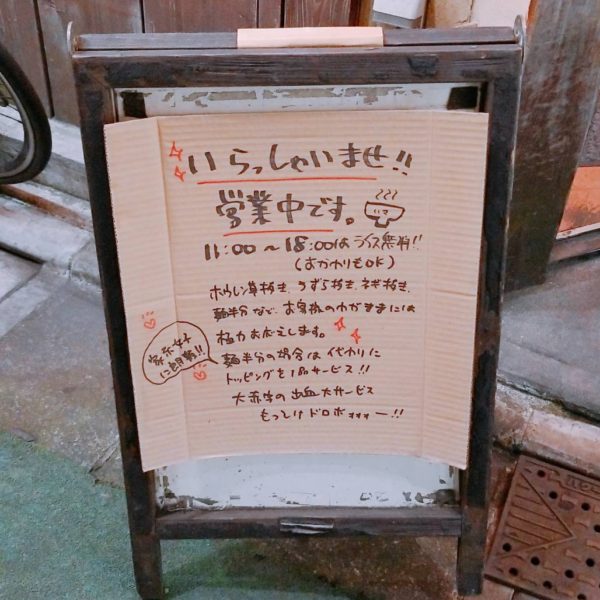 いらっしゃいませ!!
営業中です。
11:00～18:00はライス無料!!
(おかわりもOK)
ホウレン草抜き、うずら抜き、ネギ抜き、
麺半分など、お客様のわがままには
極力お応えします。
麺半分の場合は代わりに
トッピングを1品サービス!!
大赤字の出血大サービス
もってけドロボォォォー!!
家系好き
に朗報!!